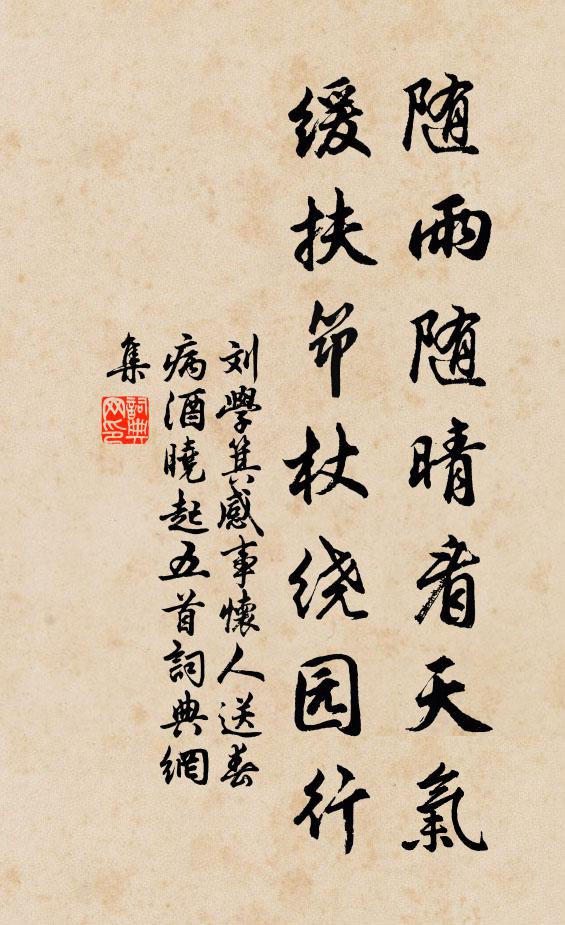 随雨随晴看天氣
缓扶筇杖绕园行
刘學箕感事懷人送春
病酒曉起五首詞典網
集
詞典
网印